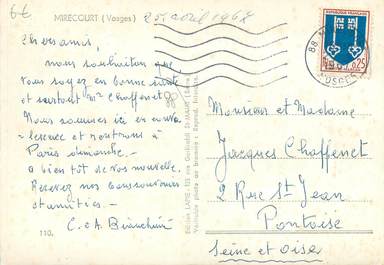 6€
MIRECOURT (Vosges)
25 avril 1967
REPUBLIQUE FRANÇAISE
0,25
88
VOSGES
Chers amis,
nous souhaitons que
vous soyez en bonne santé
et surtout Mr Chaffenet
Nous sommes ici en conva-
lescence et rentrons à
Paris dimanche.
A bien tôt de vos nouvelles.
Recevez nos bons souvenirs
et amitiés -
C. et A. Bianchini
110.
Monsieur et Madame
Jacques Chaffenet
2 Rue St Jean
Pontoise
Seine et Oise
Edition LAPIE
Véritable photo au Bromure - Reprod. Interdite